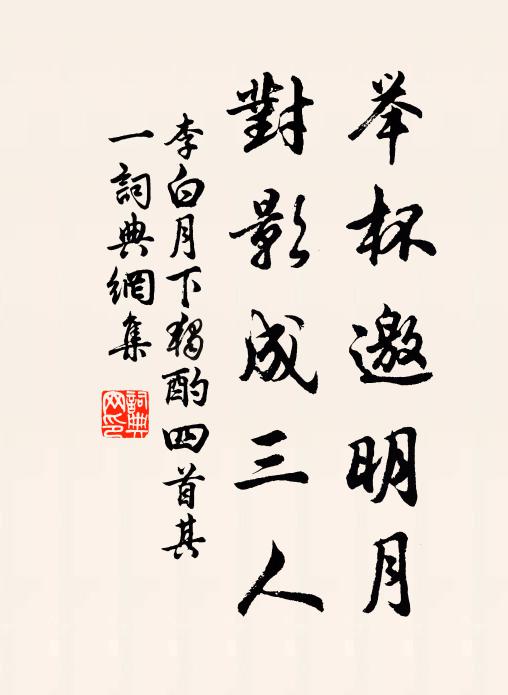 举杯邀明月
對影成三人
李白月下獨酌四首其
一詞典網集
詞典
网印